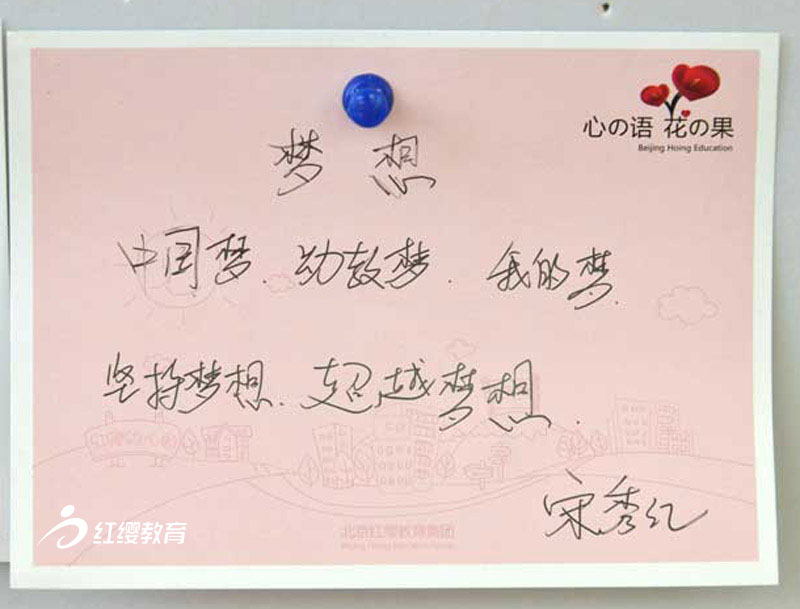 心の语 花の果
Beijing Hoing Education
梦 想
中国梦、幼教梦、我的梦
坚持梦想、超越梦想.
宋秀红
红缨教育
北京红缨教育集团